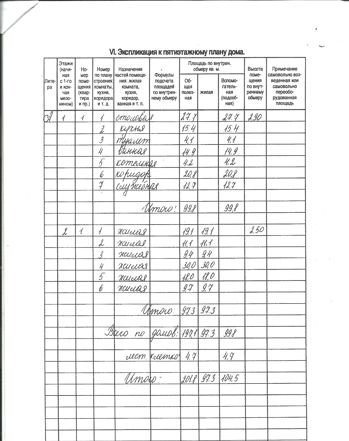 VI. Экспликация к пятиэтажному плану дома.
Литера | Этажи (начиная с 1-го и кончая мезонином) | Номер помещения (квартира и пр.) | Номер по плану строения: комнаты, кухни, коридоров и т. д. | Назначения частей помещения: жилая комната, кухня, коридор, ванная и т. п. | Формулы подсчета площадей по внутреннему обмеру | Площадь по внутрен. обмеру кв. м. Общая полезная | жилая | Вспомогательная (подсобная) | Высота помещения по внутреннему обмеру | Примечание самовольно возведенная или самовольно переоборудованная площадь
А 1 1 1 столовая 27.7 27.7 2.90
2 кухня 15.4 15.4
3 туалет 4.1 4.1
4 ванная 14.9 14.9
5 котельная 4.2 4.2
6 коридор 20.8 20.8
7 служебная 12.7 12.7
Итого: 99.8 99.8
2 1 1 жилая 19.1 19.1 2.50
2 жилая 11.1 11.1
3 жилая 9.4 9.4
4 жилая 30.0 30.0
5 жилая 18.0 18.0
6 жилая 9.7 9.7
Итого 97.3 97.3
Всего по домов: 197.1 97.3 99.8
лест клетка 4.7 4.7
Итого: 201.8 97.3 104.5